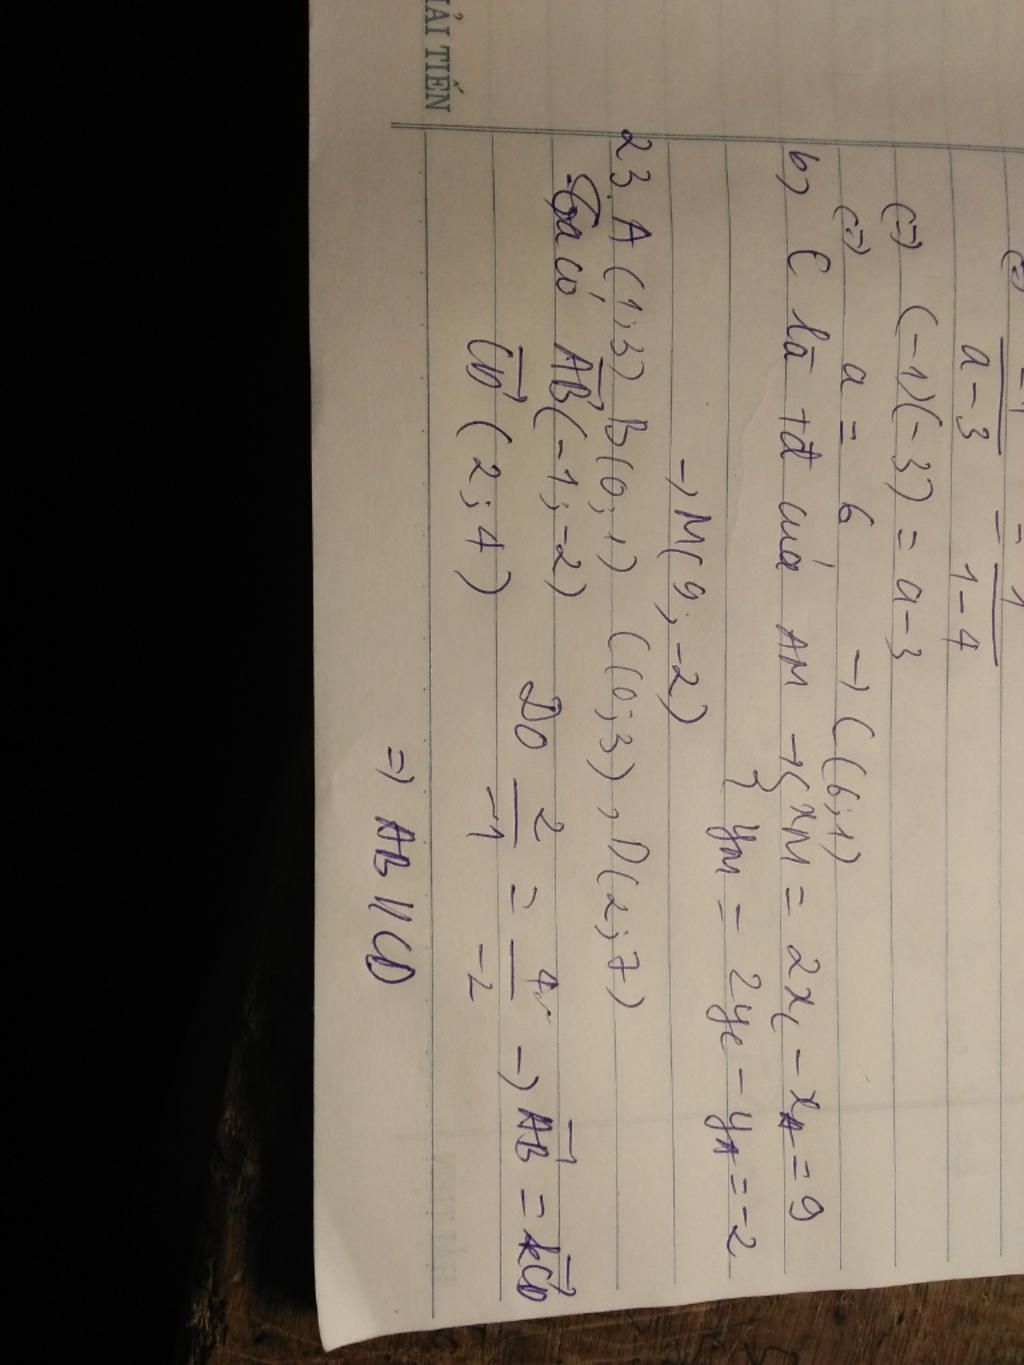 (=) -1/(a-3) = 1/(1-4)
(=) (-1)(-3) = a-3
(=) a = 6 → C(6;1)
b) C là tđ của AM → { xM = 2xC - xA = 9
{ yM = 2yC - yA = -2
→ M(9;-2)
23. A(1;3) B(0;1) C(0;3), D(2;7)
Ta có AB(-1;-2)
CD(2;4) Do 2/-1 = 4/-2 → AB = kCD
=) AB // CD
ẢI TIẾN